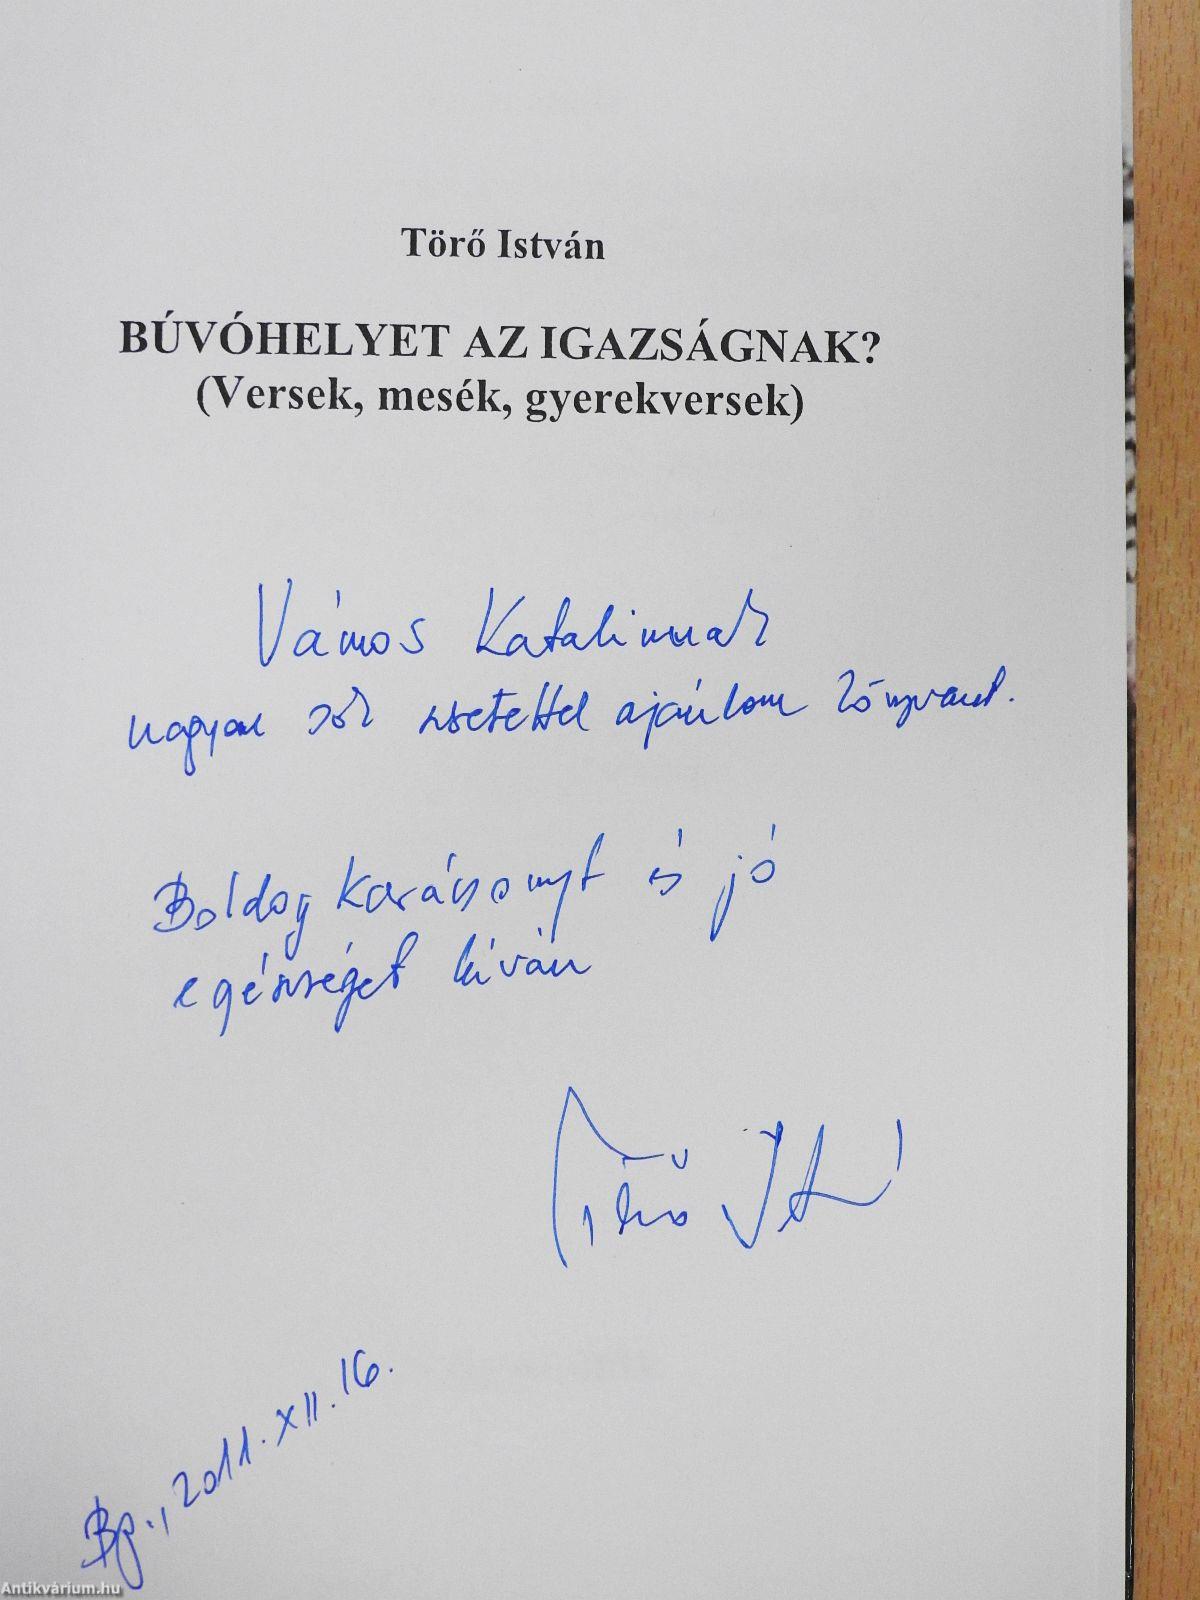 Törő István
BÚVÓHELYET AZ IGAZSÁGNAK?
(Versek, mesék, gyerekversek)
Vámos Katalinnak
nagyon sok szeretettel ajánlom könyvemet.
Boldog Karácsonyt és jó
egészséget kíván
Törő István
Bp., 2011. XII. 16.
Antikvárium.hu